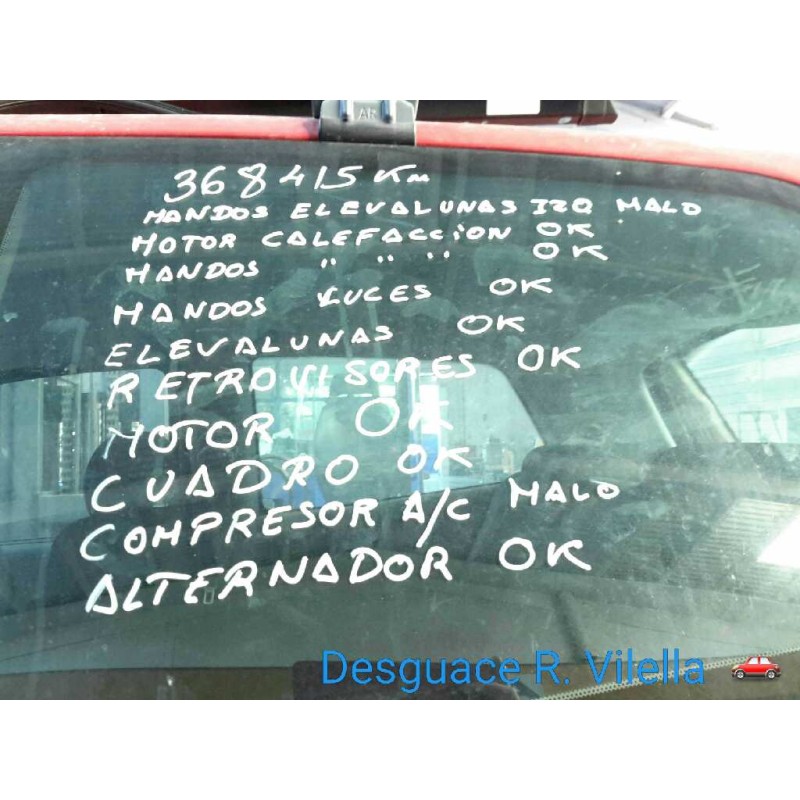 AR
368415 Km
MANDOS ELEVALUNAS IZQ MALO
MOTOR CALEFACCION OK
MANDOS " " " OK
MANDOS LUCES OK
ELEVALUNAS OK
RETROVISORES OK
MOTOR OK
CUADRO OK
COMPRESOR A/C MALO
ALTERNADOR OK
Desguace R. Vilella